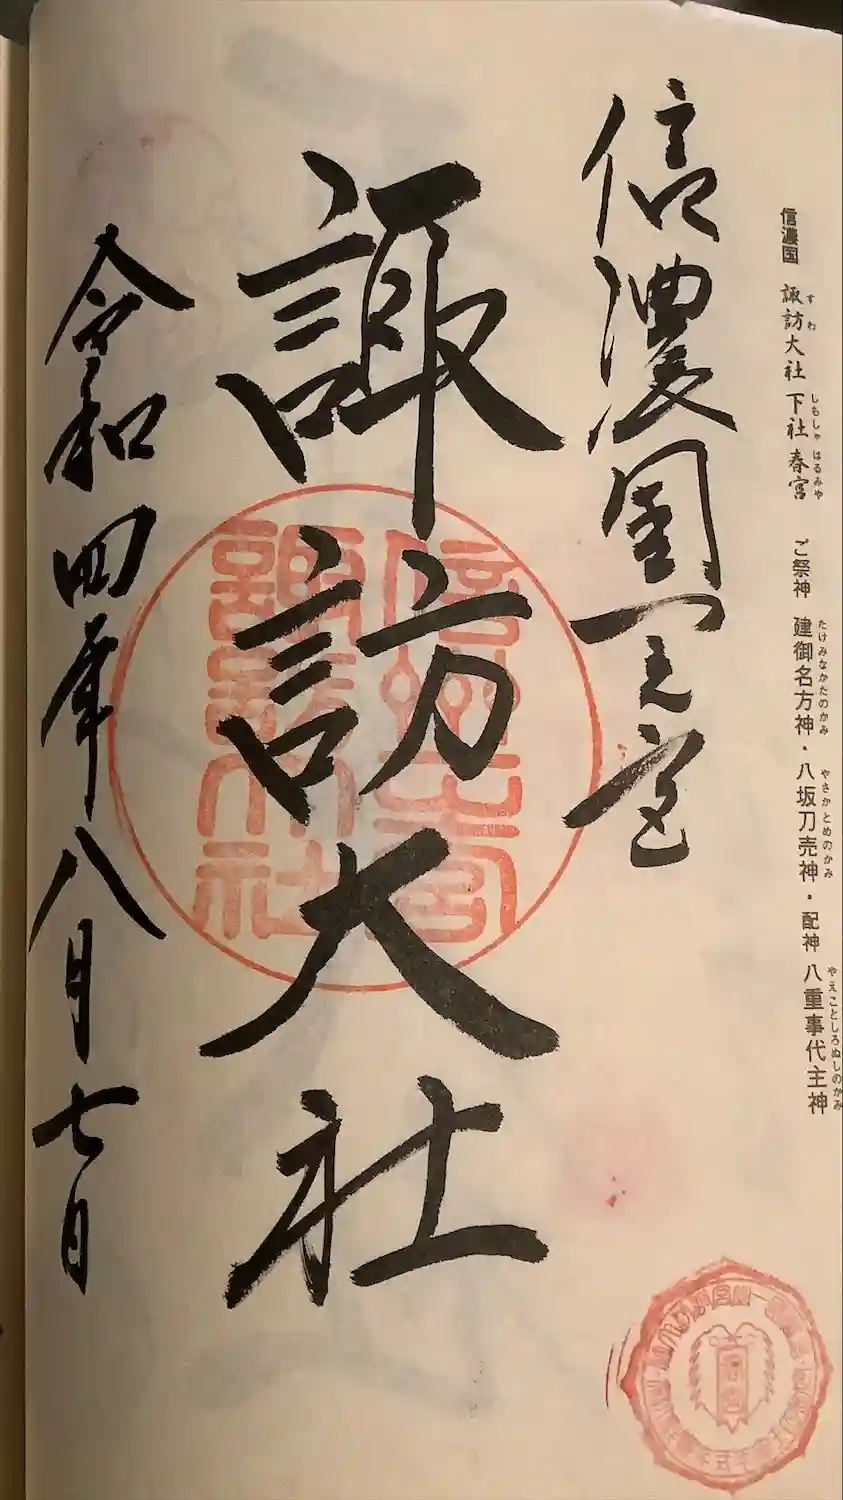 信濃国 諏訪大社 下社 春宮 ご祭神 建御名方神・八坂刀売神・配神 八重事代主神
すわ しもしゃ はるみや たけみなかたのかみ やさかとめのかみ やえことしろぬしのかみ
信濃國一之宮
諏訪大社
信濃國一之宮
諏訪大社
令和四年八月七日